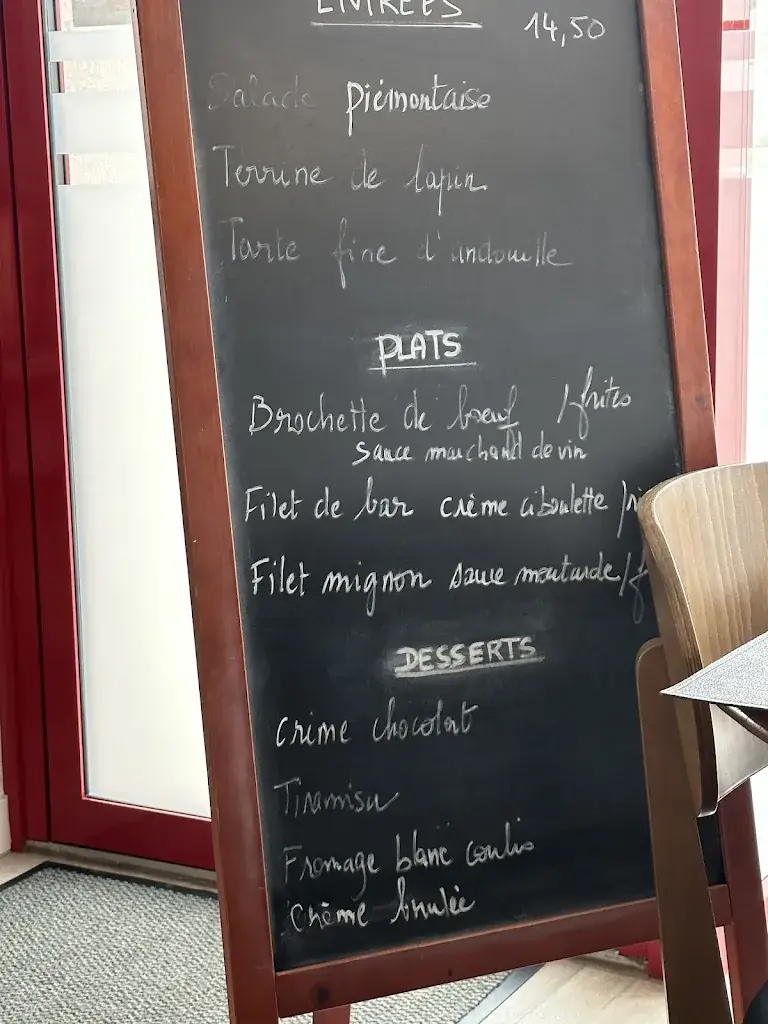 ENTRÉES
14,50
Salade piémontaise
Terrine de lapin
Tarte fine d'andouille
PLATS
Brochette de bœuf /frites
sauce marchand de vin
Filet de bar crème ciboulette /ri
Filet mignon sauce moutarde/f
DESSERTS
Crème chocolat
Tiramisu
Fromage blanc coulis
Crème brulée